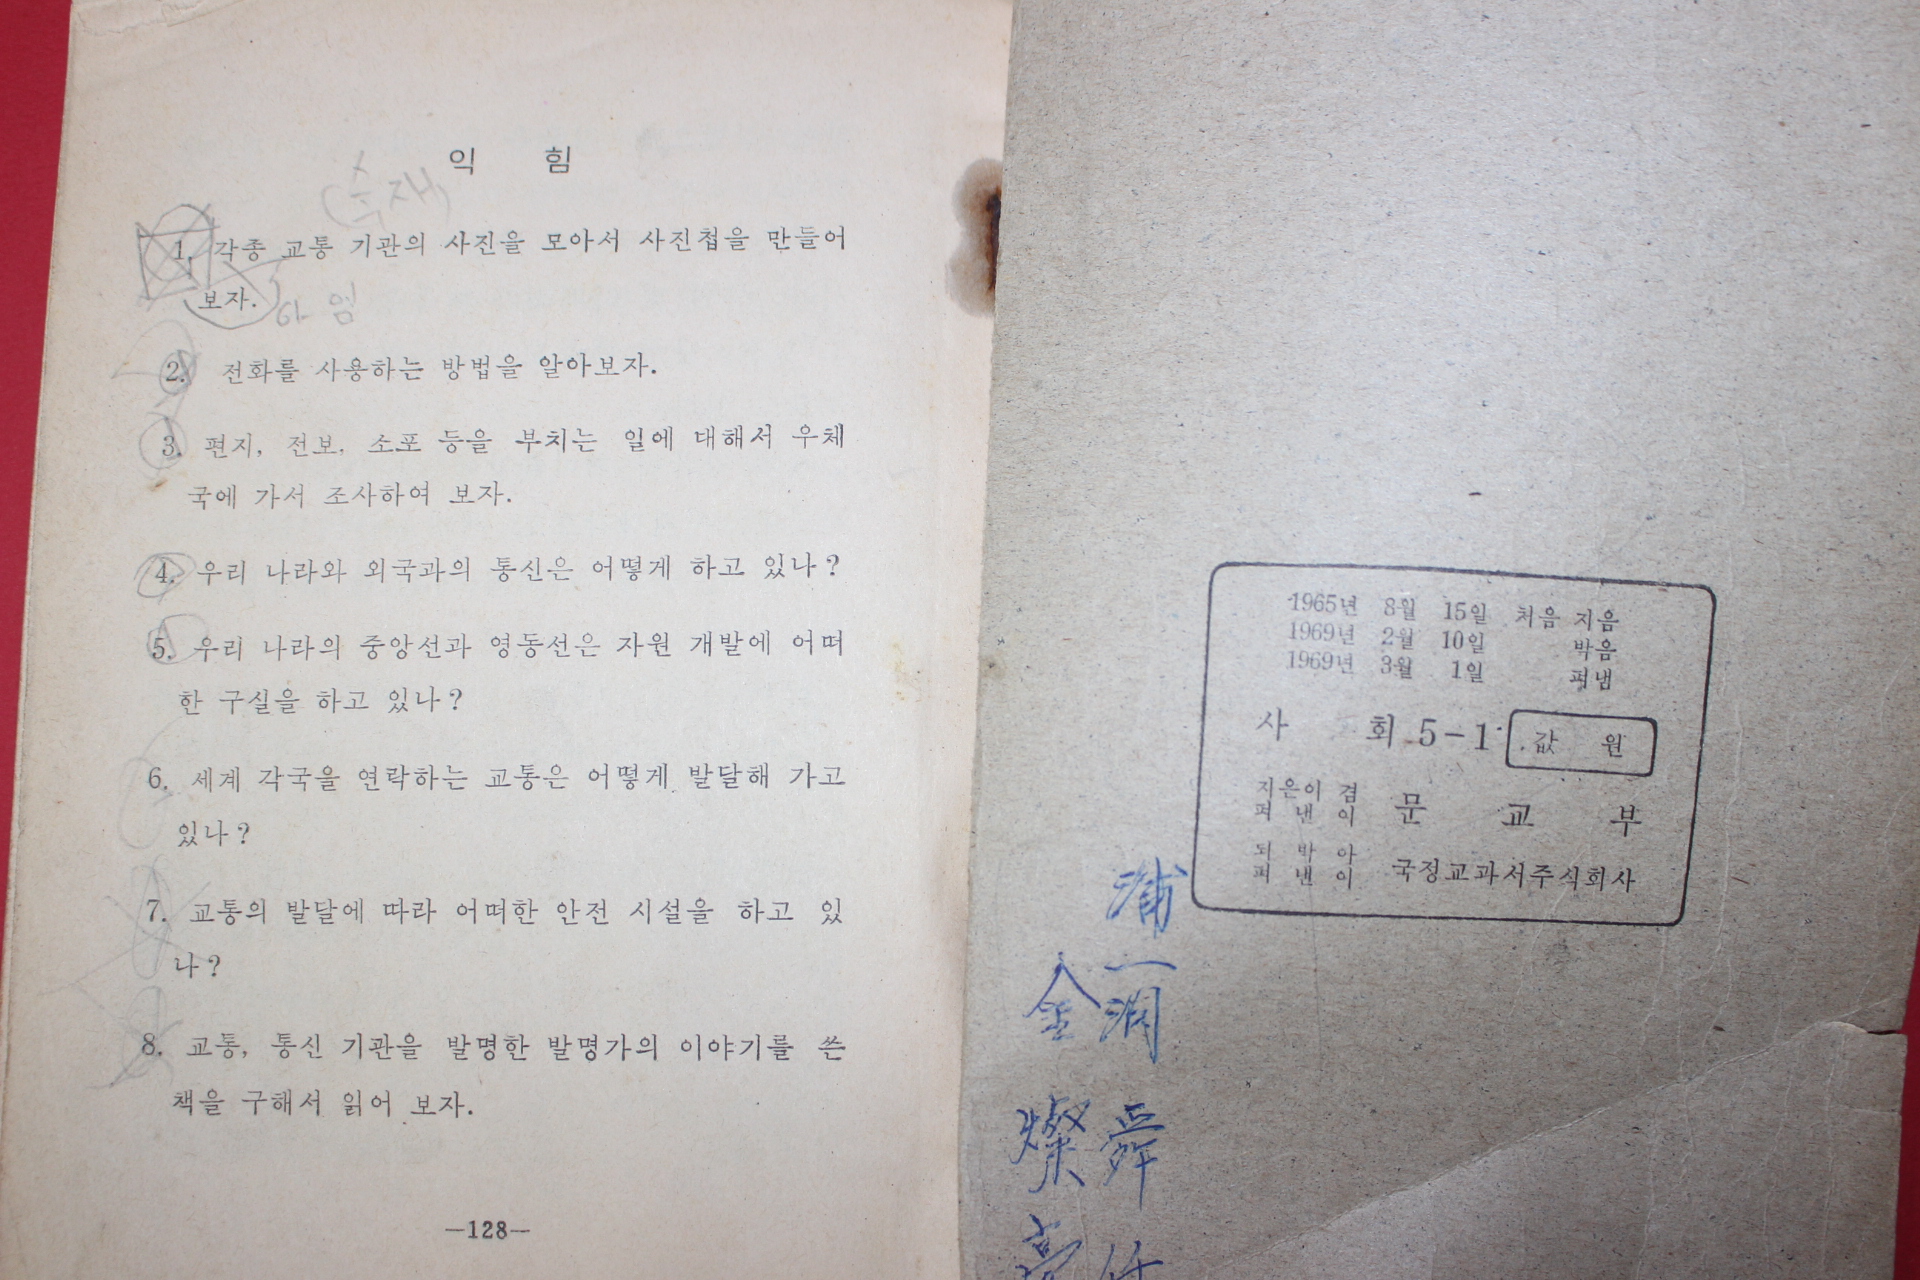 익 힘
(숙재)
1. 각종 교통 기관의 사진을 모아서 사진첩을 만들어
보자.
2. 전화를 사용하는 방법을 알아보자.
3. 편지, 전보, 소포 등을 부치는 일에 대해서 우체
국에 가서 조사하여 보자.
4. 우리 나라와 외국과의 통신은 어떻게 하고 있나?
5. 우리 나라의 중앙선과 영동선은 자원 개발에 어떠
한 구실을 하고 있나?
6. 세계 각국을 연락하는 교통은 어떻게 발달해 가고
있나?
7. 교통의 발달에 따라 어떠한 안전 시설을 하고 있
나?
8. 교통, 통신 기관을 발명한 발명가의 이야기를 쓴
책을 구해서 읽어 보자.
—128—
1965년 8월 15일 처음 지음
1969년 2월 10일 박음
1969년 3월 1일 펴냄
사 회 5-1 값 원
지은이 겸
펴 낸 이 문 교 부
되 박 아
펴 낸 이 국정교과서주식회사
浦
一
金 潤
燦 舜